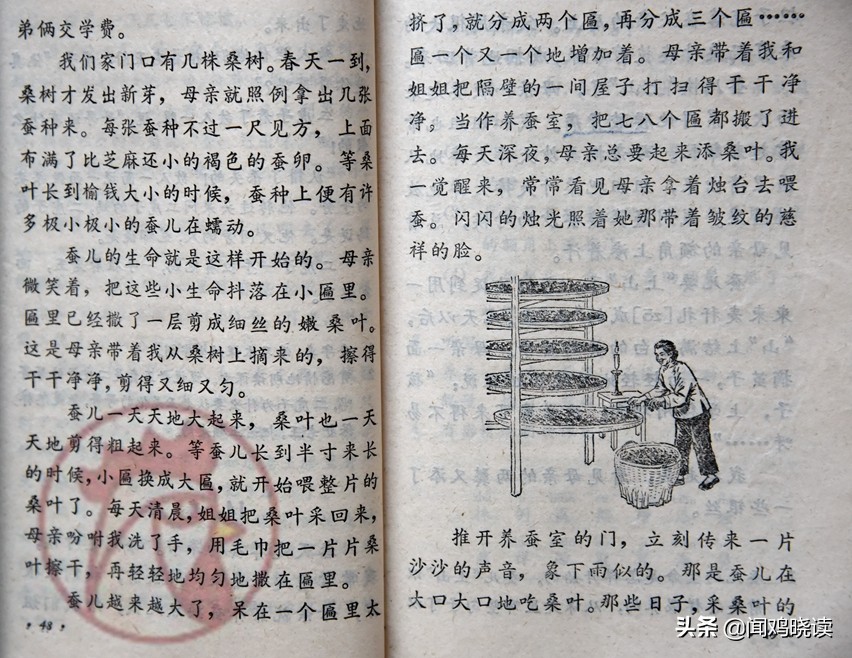 弟俩交学费。
我们家门口有几株桑树。春天一到，
桑树才发出新芽，母亲就照例拿出几张
蚕种来。每张蚕种不过一尺见方，上面
布满了比芝麻还小的褐色的蚕卵。等桑
叶长到榆钱大小的时候，蚕种上便有许
多极小极小的蚕儿在蠕动。
蚕儿的生命就是这样开始的。母亲
微笑着，把这些小生命抖落在小匾里。
匾里已经撒了一层剪成细丝的嫩桑叶。
这是母亲带着我从桑树上摘来的，擦得
干干净净，剪得又细又匀。
蚕儿一天天地大起来，桑叶也一天
天地剪得粗起来。等蚕儿长到半寸来长
的时候，小匾换成大匾，就开始喂整片的
桑叶了。每天清晨，姐姐把桑叶采回来，
母亲吩咐我洗了手，用毛巾把一片片桑
叶擦干，再轻轻地均匀地撒在匾里。
蚕儿越来越大了，呆在一个匾里太
· 48 ·
挤了，就分成两个匾，再分成三个匾……
匾一个又一个地增加着。母亲带着我和
姐姐把隔壁的一间屋子打扫得干干净
净。当作养蚕室，把七八个匾都搬了进
去。每天深夜，母亲总要起来添桑叶。我
一觉醒来，常常看见母亲拿着烛台去喂
蚕。闪闪的烛光照着她那带着皱纹的慈
祥的脸。
推开养蚕室的门，立刻传来一片
沙沙的声音，象下雨似的。那是蚕儿在
大口大口地吃桑叶。那些日子，采桑叶的
头条 @闻鸡晓读